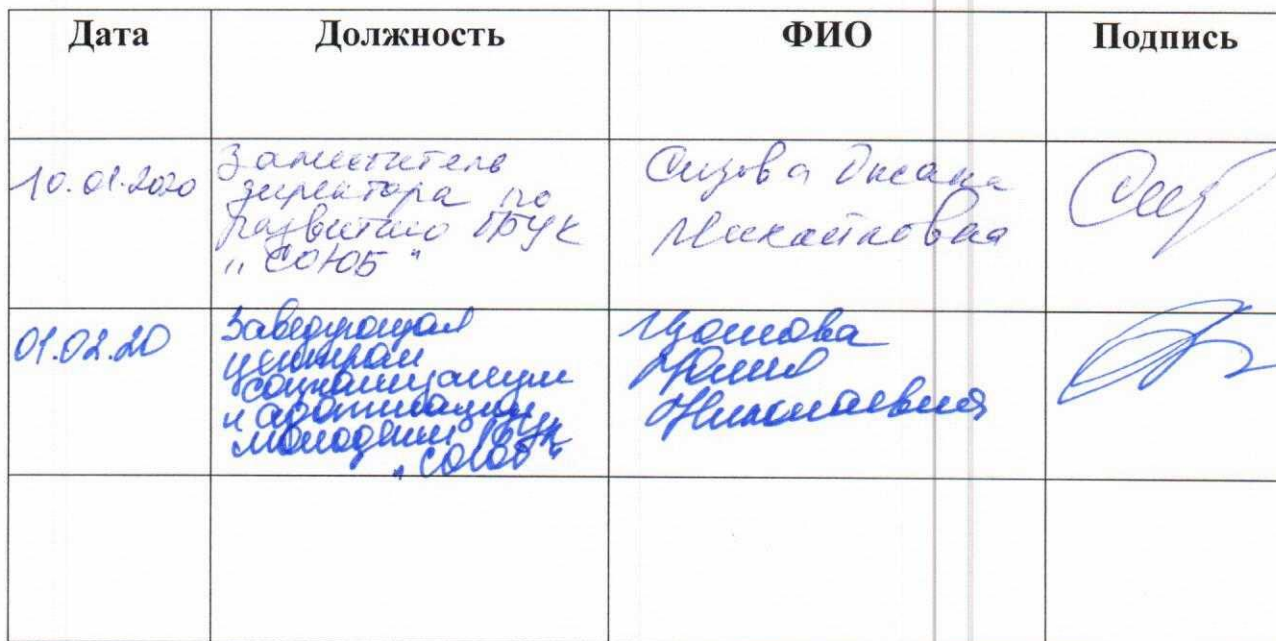 Дата Должность ФИО Подпись
10.01.2020
Заместитель
директора по
развитию ГБУК
"СОЮБ"
Сизова Оксана
Михайловна
01.02.20
Заведующая
центром
социализации
и адаптации
молодежи ГБУК
"СОЮБ"
Николаевна